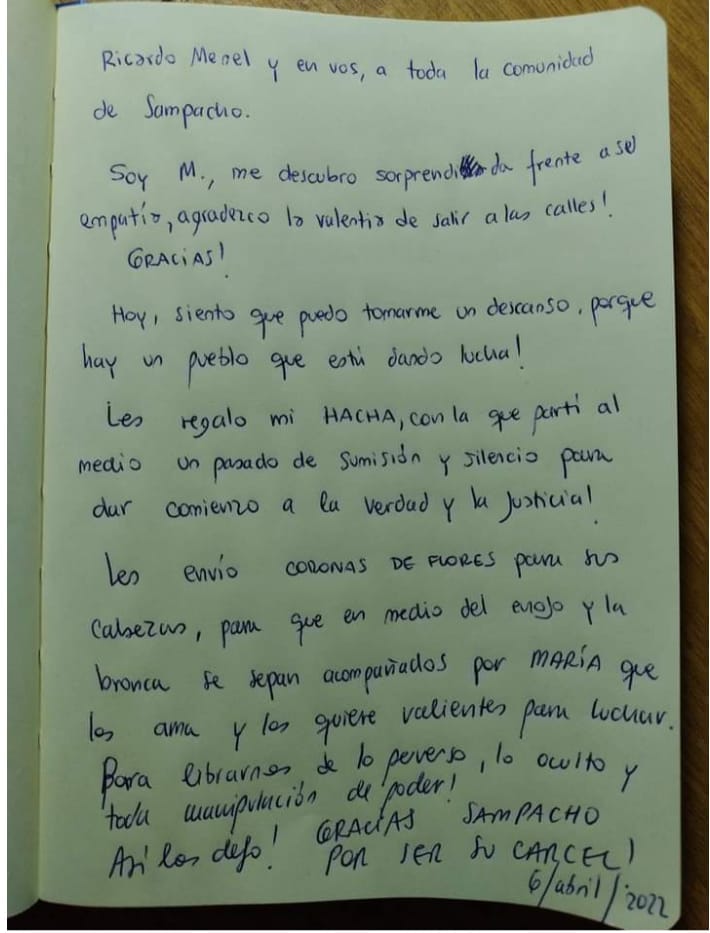 Ricardo Menel y en vos, a toda la comunidad
de Sampacho.
Soy M., me descubro sorprendida frente a se
empatía, agradezco la valentía de salir a las calles!
GRACIAS!
Hoy, siento que puedo tomarme un descanso, porque
hay un pueblo que está dando lucha!
Les regalo mi HACHA, con la que partí al
medio un pasado de sumisión y silencio para
dar comienzo a la verdad y la justicia!
Les envío CORONAS DE FLORES para sus
cabezas, para que en medio del enojo y la
bronca se sepan acompañados por MARÍA que
los ama y los quiere valientes para luchar.
Para librarnos de lo perverso, lo oculto y
toda manipulación de poder!
Así los dejo! GRACIAS SAMPACHO
POR SER SU CARCEL!
6/abril/2022